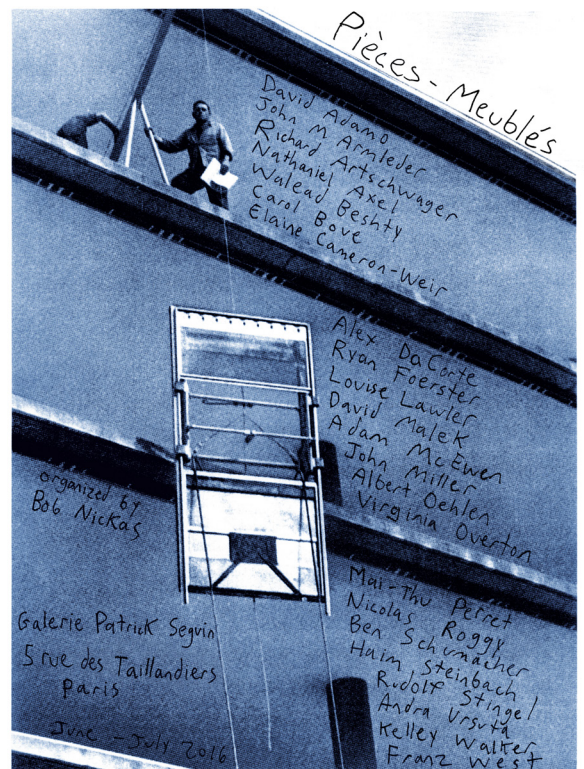 Pièces - Meublés
David Adamo
John M Armleder
Richard Artschwager
Nathaniel Axel
Walead Beshty
Carol Bove
Elaine Cameron-Weir
Alex DaCorte
Ryan Foerster
Louise Lawler
David Malek
Adam McEwen
John Miller
Albert Oehlen
Virginia Overton
organized by
Bob Nickas
Mai-Thu Perret
Nicolas Roggy
Ben Schumacher
Haim Steinbach
Rudolf Stingel
Andra Ursuta
Kelley Walker
Franz West
Galerie Patrick Seguin
5 rue des Taillandiers
Paris
June - July 2016